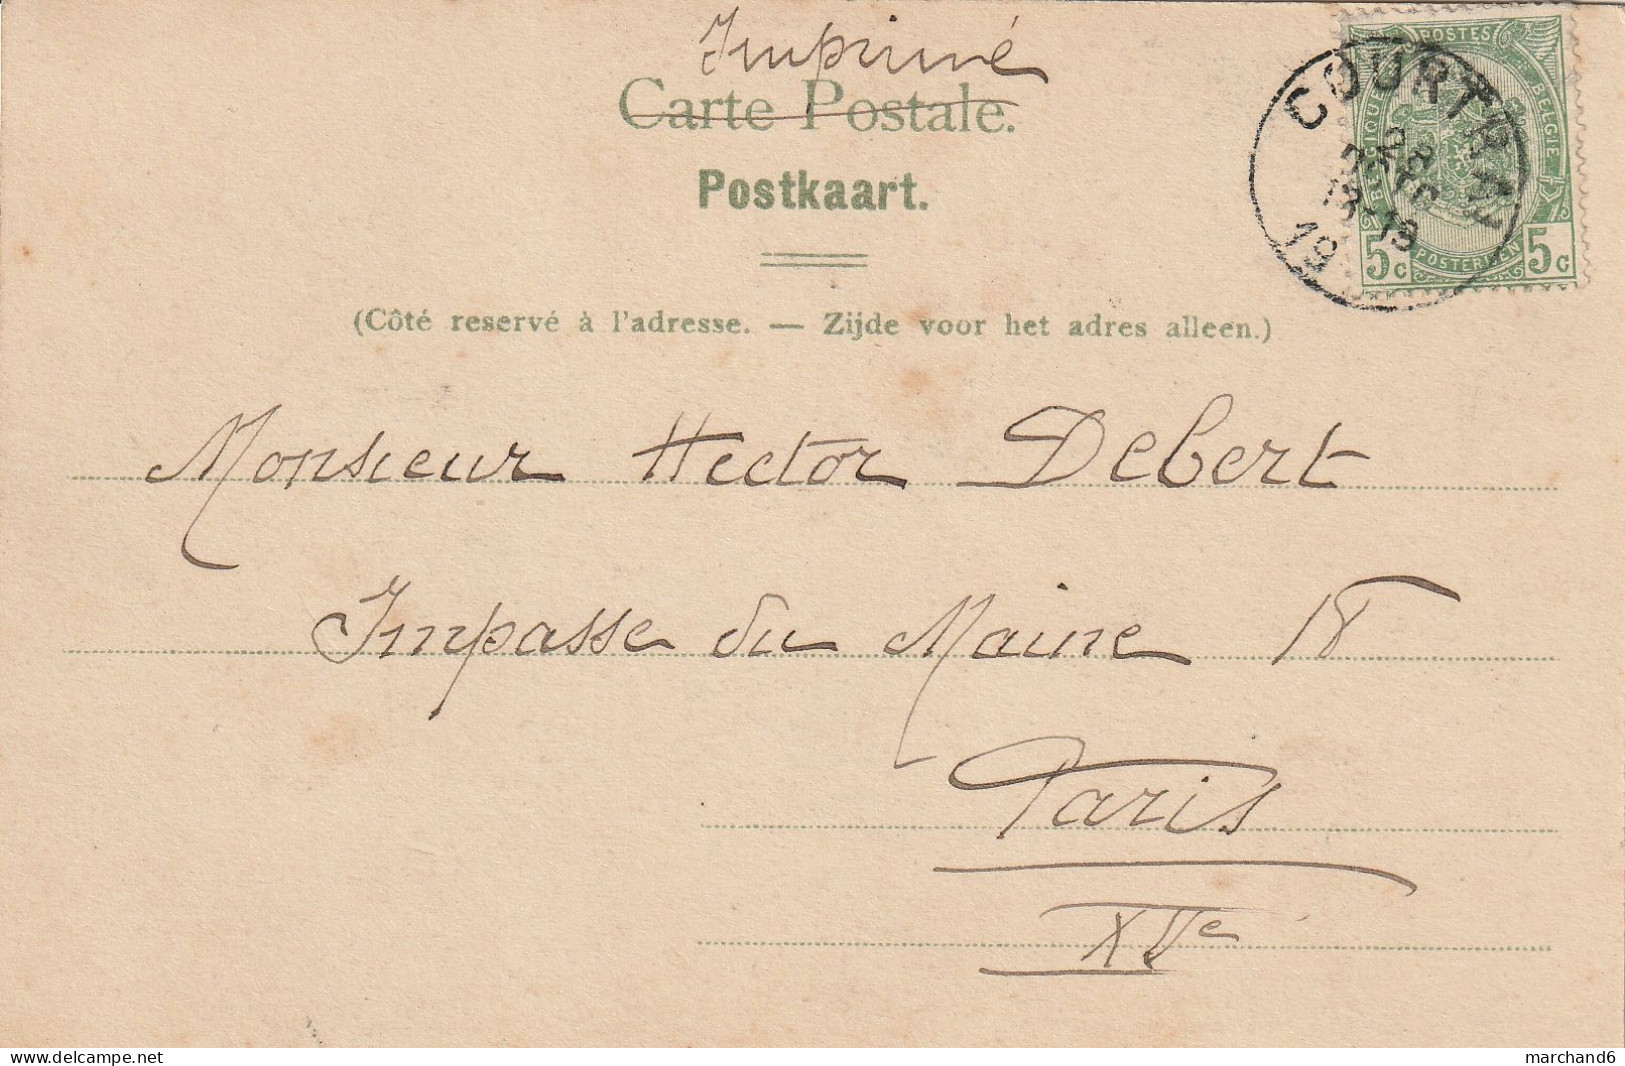 Imprimé
Carte Postale.
Postkaart.
(Côté reservé à l'adresse. — Zijde voor het adres alleen.)
POSTES
BELGIE
5c 5c
COURTRAI
18-19
19
Monsieur Hector Debert
Impasse du Maine 18
Paris
XVe
marchand6
www.delcampe.net